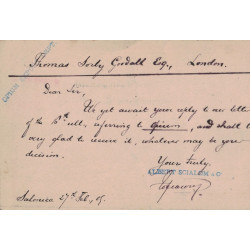 Thomas Sorby Goodall Esq., London.
Dear Sir,
We yet await your reply to our letter
of the 8th ult, referring to and shall be
very glad to receive it, whatever may be your
decision.
Yours truly
ALBERT SCIALOM & Co
Salonica 27th Feb,